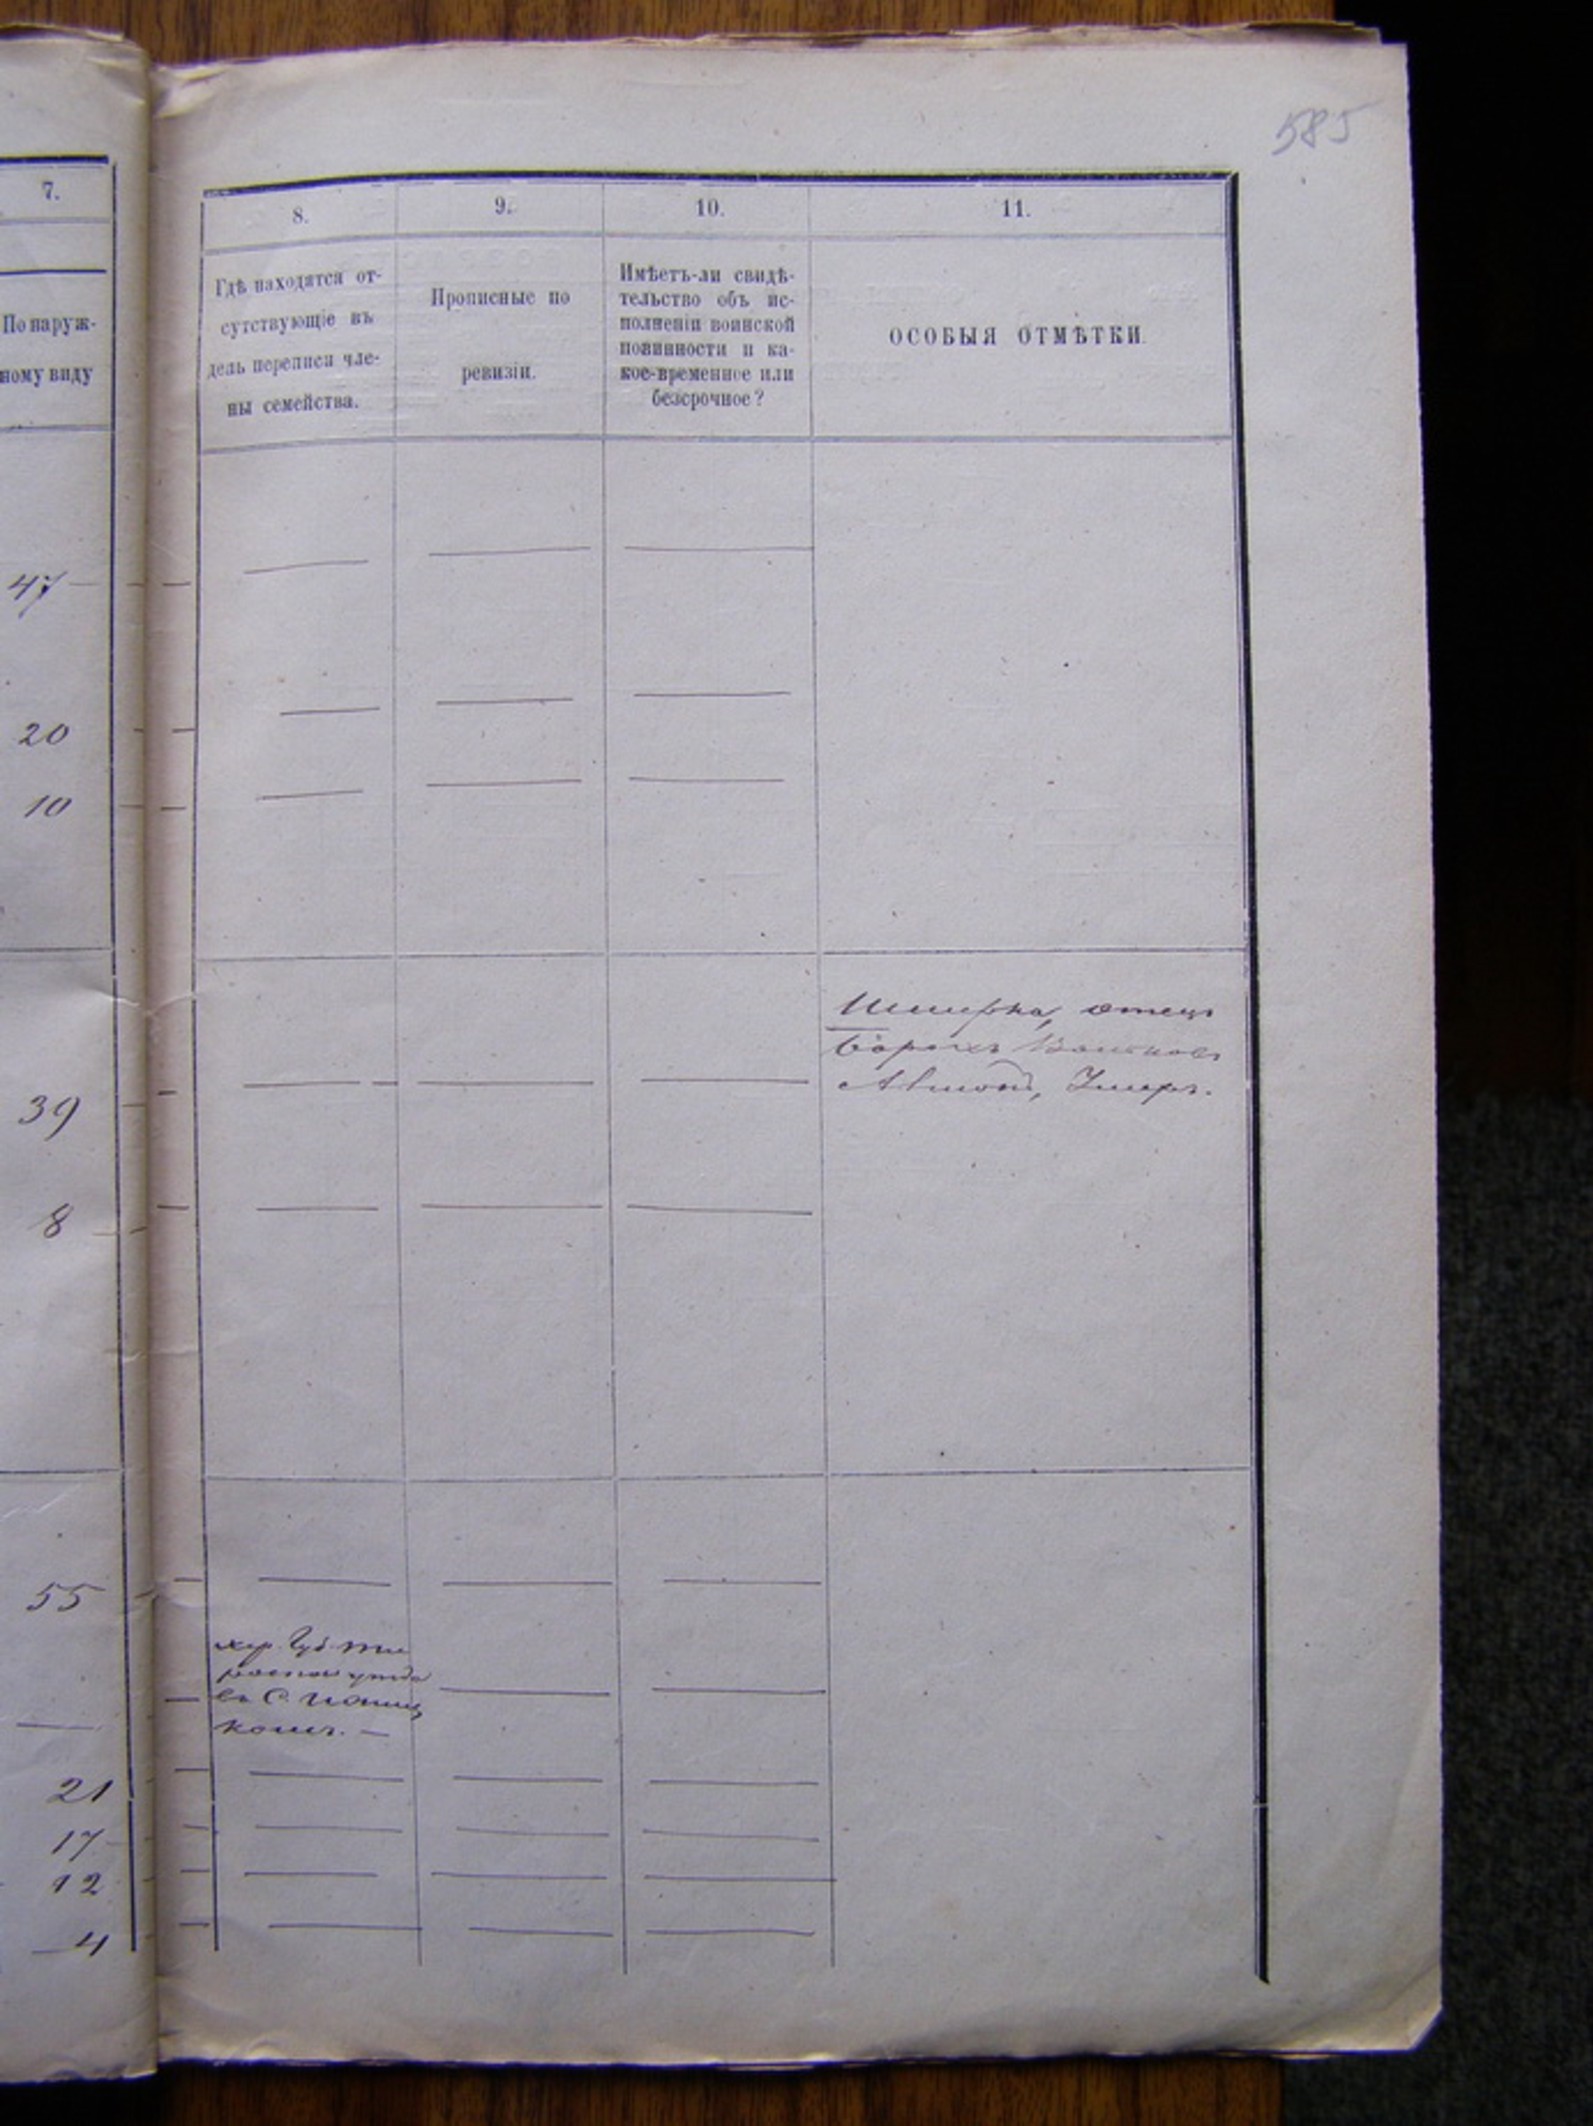 585
7.
8.
9.
10.
11.
По наруж-
ному виду
Гдѣ находятся от-
сутствующіе въ
день переписи чле-
ны семейства.
Прописные по
ревизіи.
Имѣетъ-ли свидѣ-
тельство объ ис-
полненіи воинской
повинности и ка-
кое-временное или
безсрочное?
ОСОБЫЯ ОТМѢТКИ.
47
20
10
39
8
отецъ
Умеръ.
55
хер. Губ.
въ С.
21
17
12
4